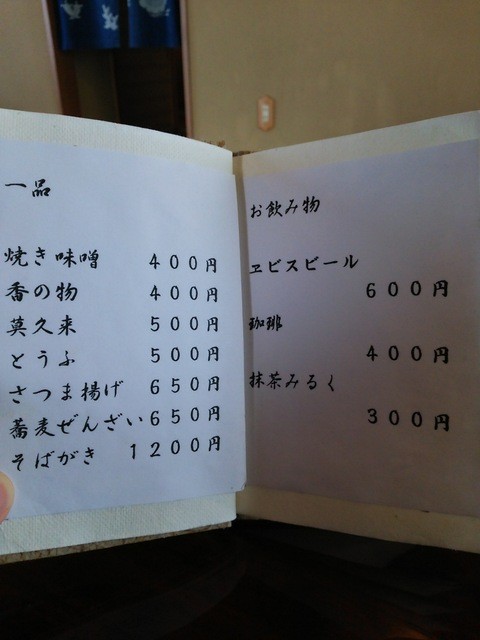 一品
焼き味噌 400円
香の物 400円
莫久来 500円
とうふ 500円
さつま揚げ 650円
蕎麦ぜんざい 650円
そばがき 1200円
お飲み物
ヱビスビール
600円
珈琲
400円
抹茶みるく
300円